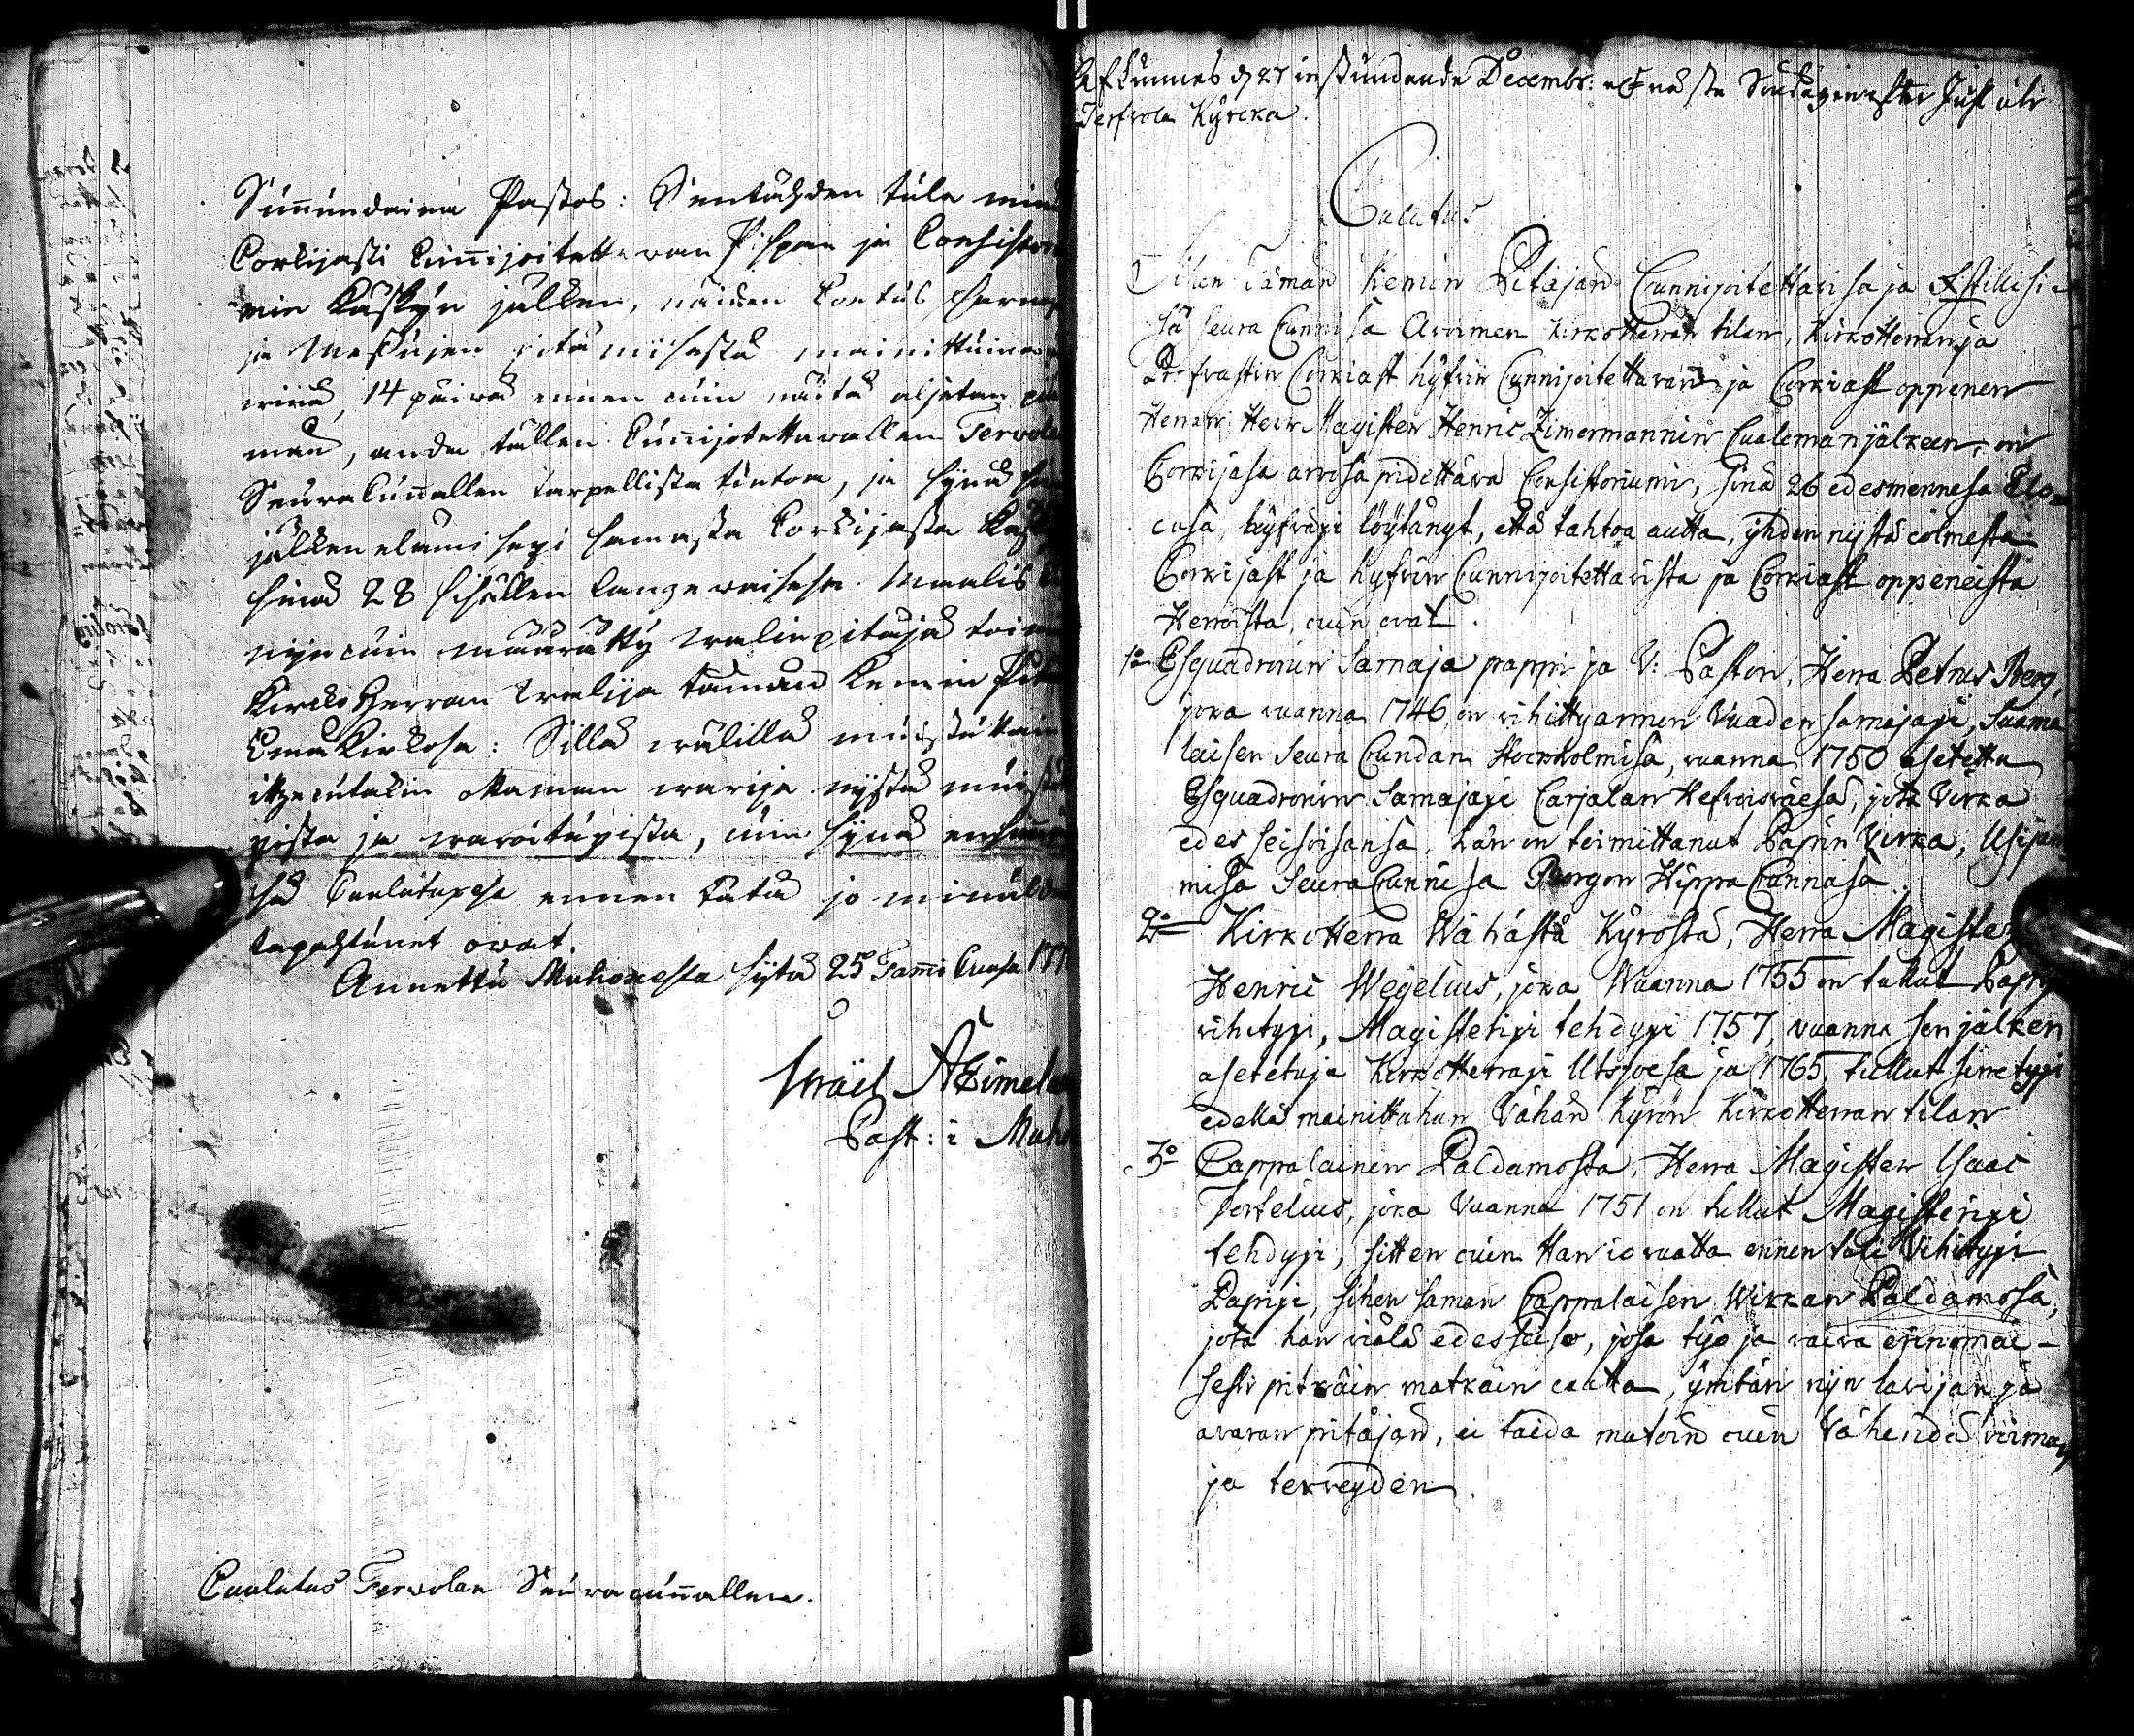 Sunundaina Pastos: Sentähden tule minu
Corkijasti Cunnijoitettavan Pispan ja Consistor
min Käskyn jälken, näiden Coetus
ja Messujen pitämisestä mainittuina
viind, 14 päivä ennen cuin näitä aljetan
man, anda tällen Cunnijotettavallen Tervola
Seuracunnallen tarpellista tietoa, ja synd
jälken elämisexi samasta Corkijasta Käs
sinä 28 sisällen langevaisesa Maalis
nijncuin määrätty vaalinpitäjä toi
Kircko Herran Vaalija tämän Kemin Pitä
Emä Kirkosa: Sillä välillä muistuttain
itzecutakin ottaman vaarija nijstä muistu
xista ja varoituxista, cuin synd
sä Cuulutuxesa ennen tätä jo minulda
tapahtunet ovat.
Annettu Muhoxesta sijtä 25 Tammi Cuusa 177
Israël Aëimelæ
Past: i Muho
Cuulutus Tervolan Seuracunnallen.
afkunnes d 27 instundande Decembr: näst Söndagen efter Juhl uti
Terfvola Kyrcka.
Culutus
Tilen Tämän Kemin Pitäjän Cunnijoitettavisa ja
sä seura Cunnisa Avoimen Kirkoherran tilan, Kirkoherran ja
Profvastin Corkiast hyfvin Cunnijoitettavan ja Corkiast oppenen
Herran Herr Magister Henric Zimermannin Cualeman jälkeen, on
Corkijasa arvosa pidettävä Consistoriumi, sinä 26 edesmennesä Elo-
cusa, hyfväxi löytänyt, että tahtoa autta, yhden nijstä colmesta
Corkijast ja hyfvin Cunnijoitettavista ja Corkiast oppeneista
Herroista, cuin ovat.
1o Esquadronin Sarnaja pappi ja V: Pastor, Herra Petrus Berg,
joka vuanna 1746, on vihitty armen Vuaden sarnajaxi, Suoma
laisen Seura Cundan Stockholmisa, vuanna 1750 asetettu
Esquadronin Sarnajaxi Carjalan Hefvoisväesä, jota Virka
edes seisoisansa, hän on toimittanut Papin Virka, Usijam
misa Seura Cunnisa Borgon Hippa Cunnasa
2o Kirkoherra Wähästä Kyröstä, Herra Magister
Henric Wegelius, joka Vuanna 1755 on tullut Papi
vihityxi, Magisterixi tehdyxi 1757, vuanna sen jälken
asetetuxi Kirkoherraxi Utsjoesa ja 1765, tullut sirretyxi
edellä mainittuhun Vähän Kyrön Kirkoherran tilan
3o Cappalainen Paldamosta, Herra Magister Isaac
Tortelius, joka Vuanna 1751 on tullut Magisterixi
tehdyxi, sitten cuin Han 10 vuatta ennen tuli Vihityxi
Papixi, sihen saman Cappalaisen Wirkan Paldamosa,
jota han vielä edesseiso, josa työ ja vaiva erinomai-
sesti pitkäin matkain cautta, ymbäri nijn lavijan ja
avaran pitäjän, ei taida mutoin cuin Vähendä voiman
ja terveyden.